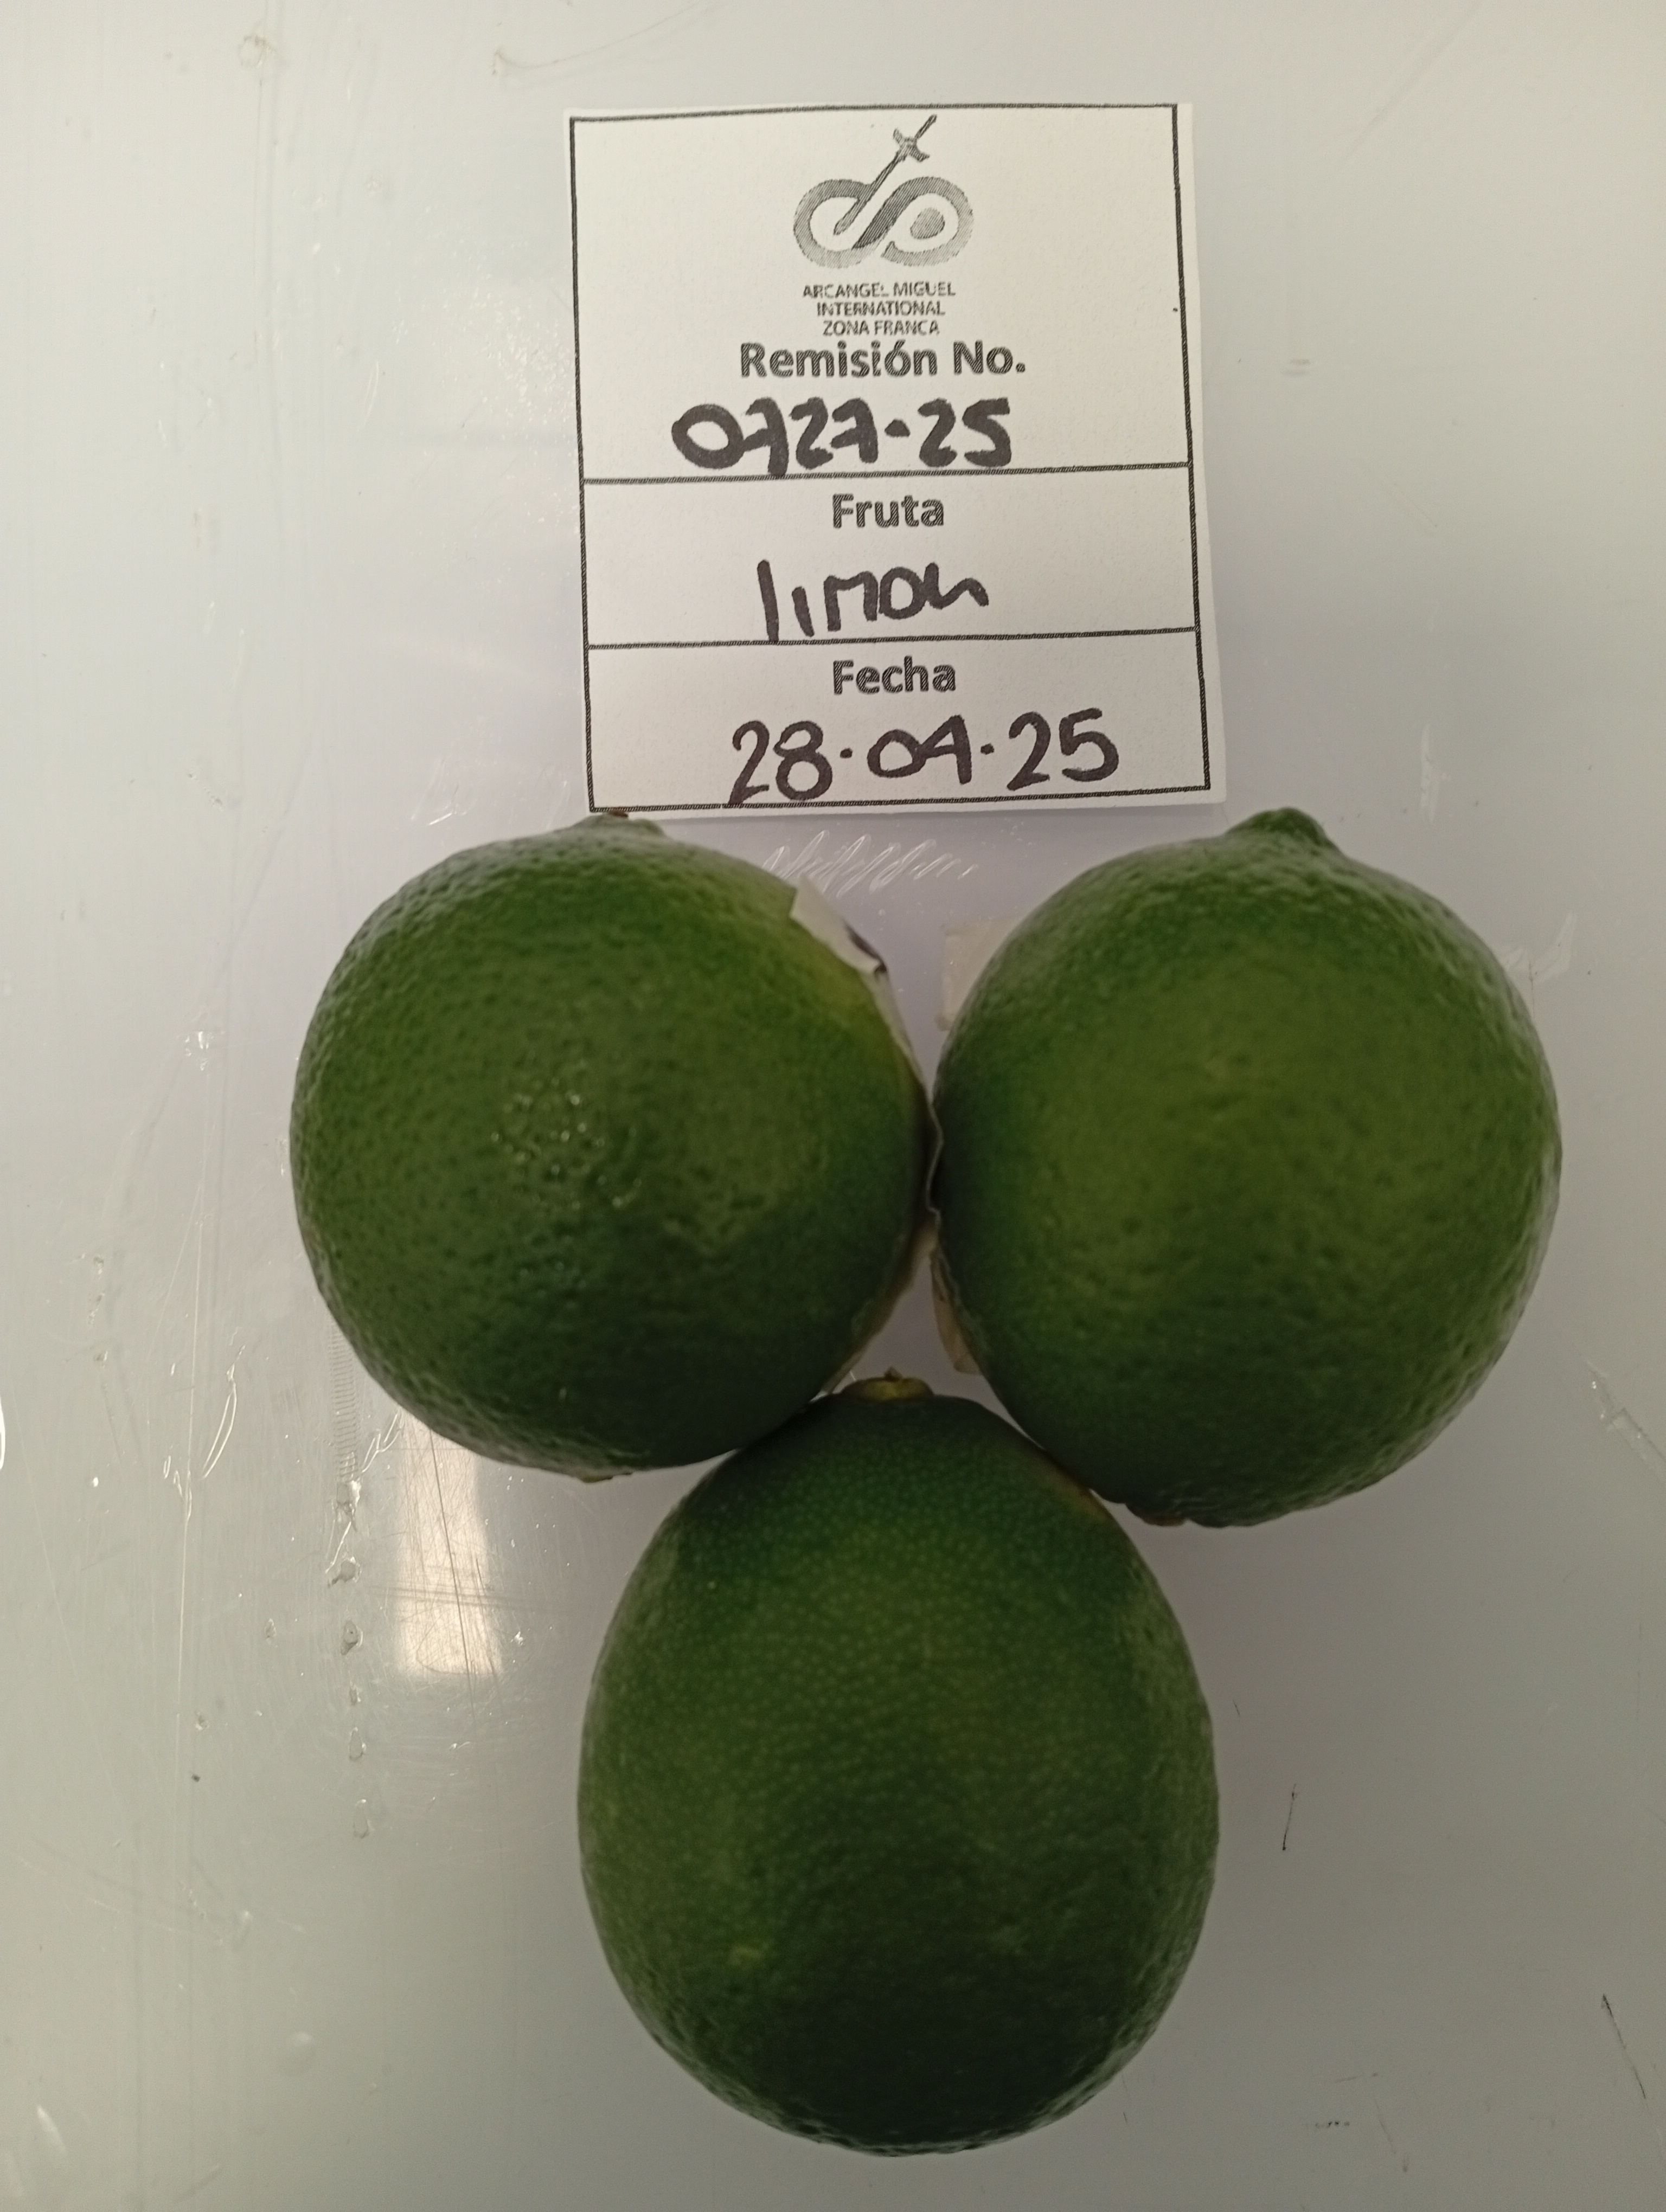 ARCANGEL MIGUEL
INTERNATIONAL
ZONA FRANCA
Remisión No.
0727-25
Fruta
limon
Fecha
28.04.25